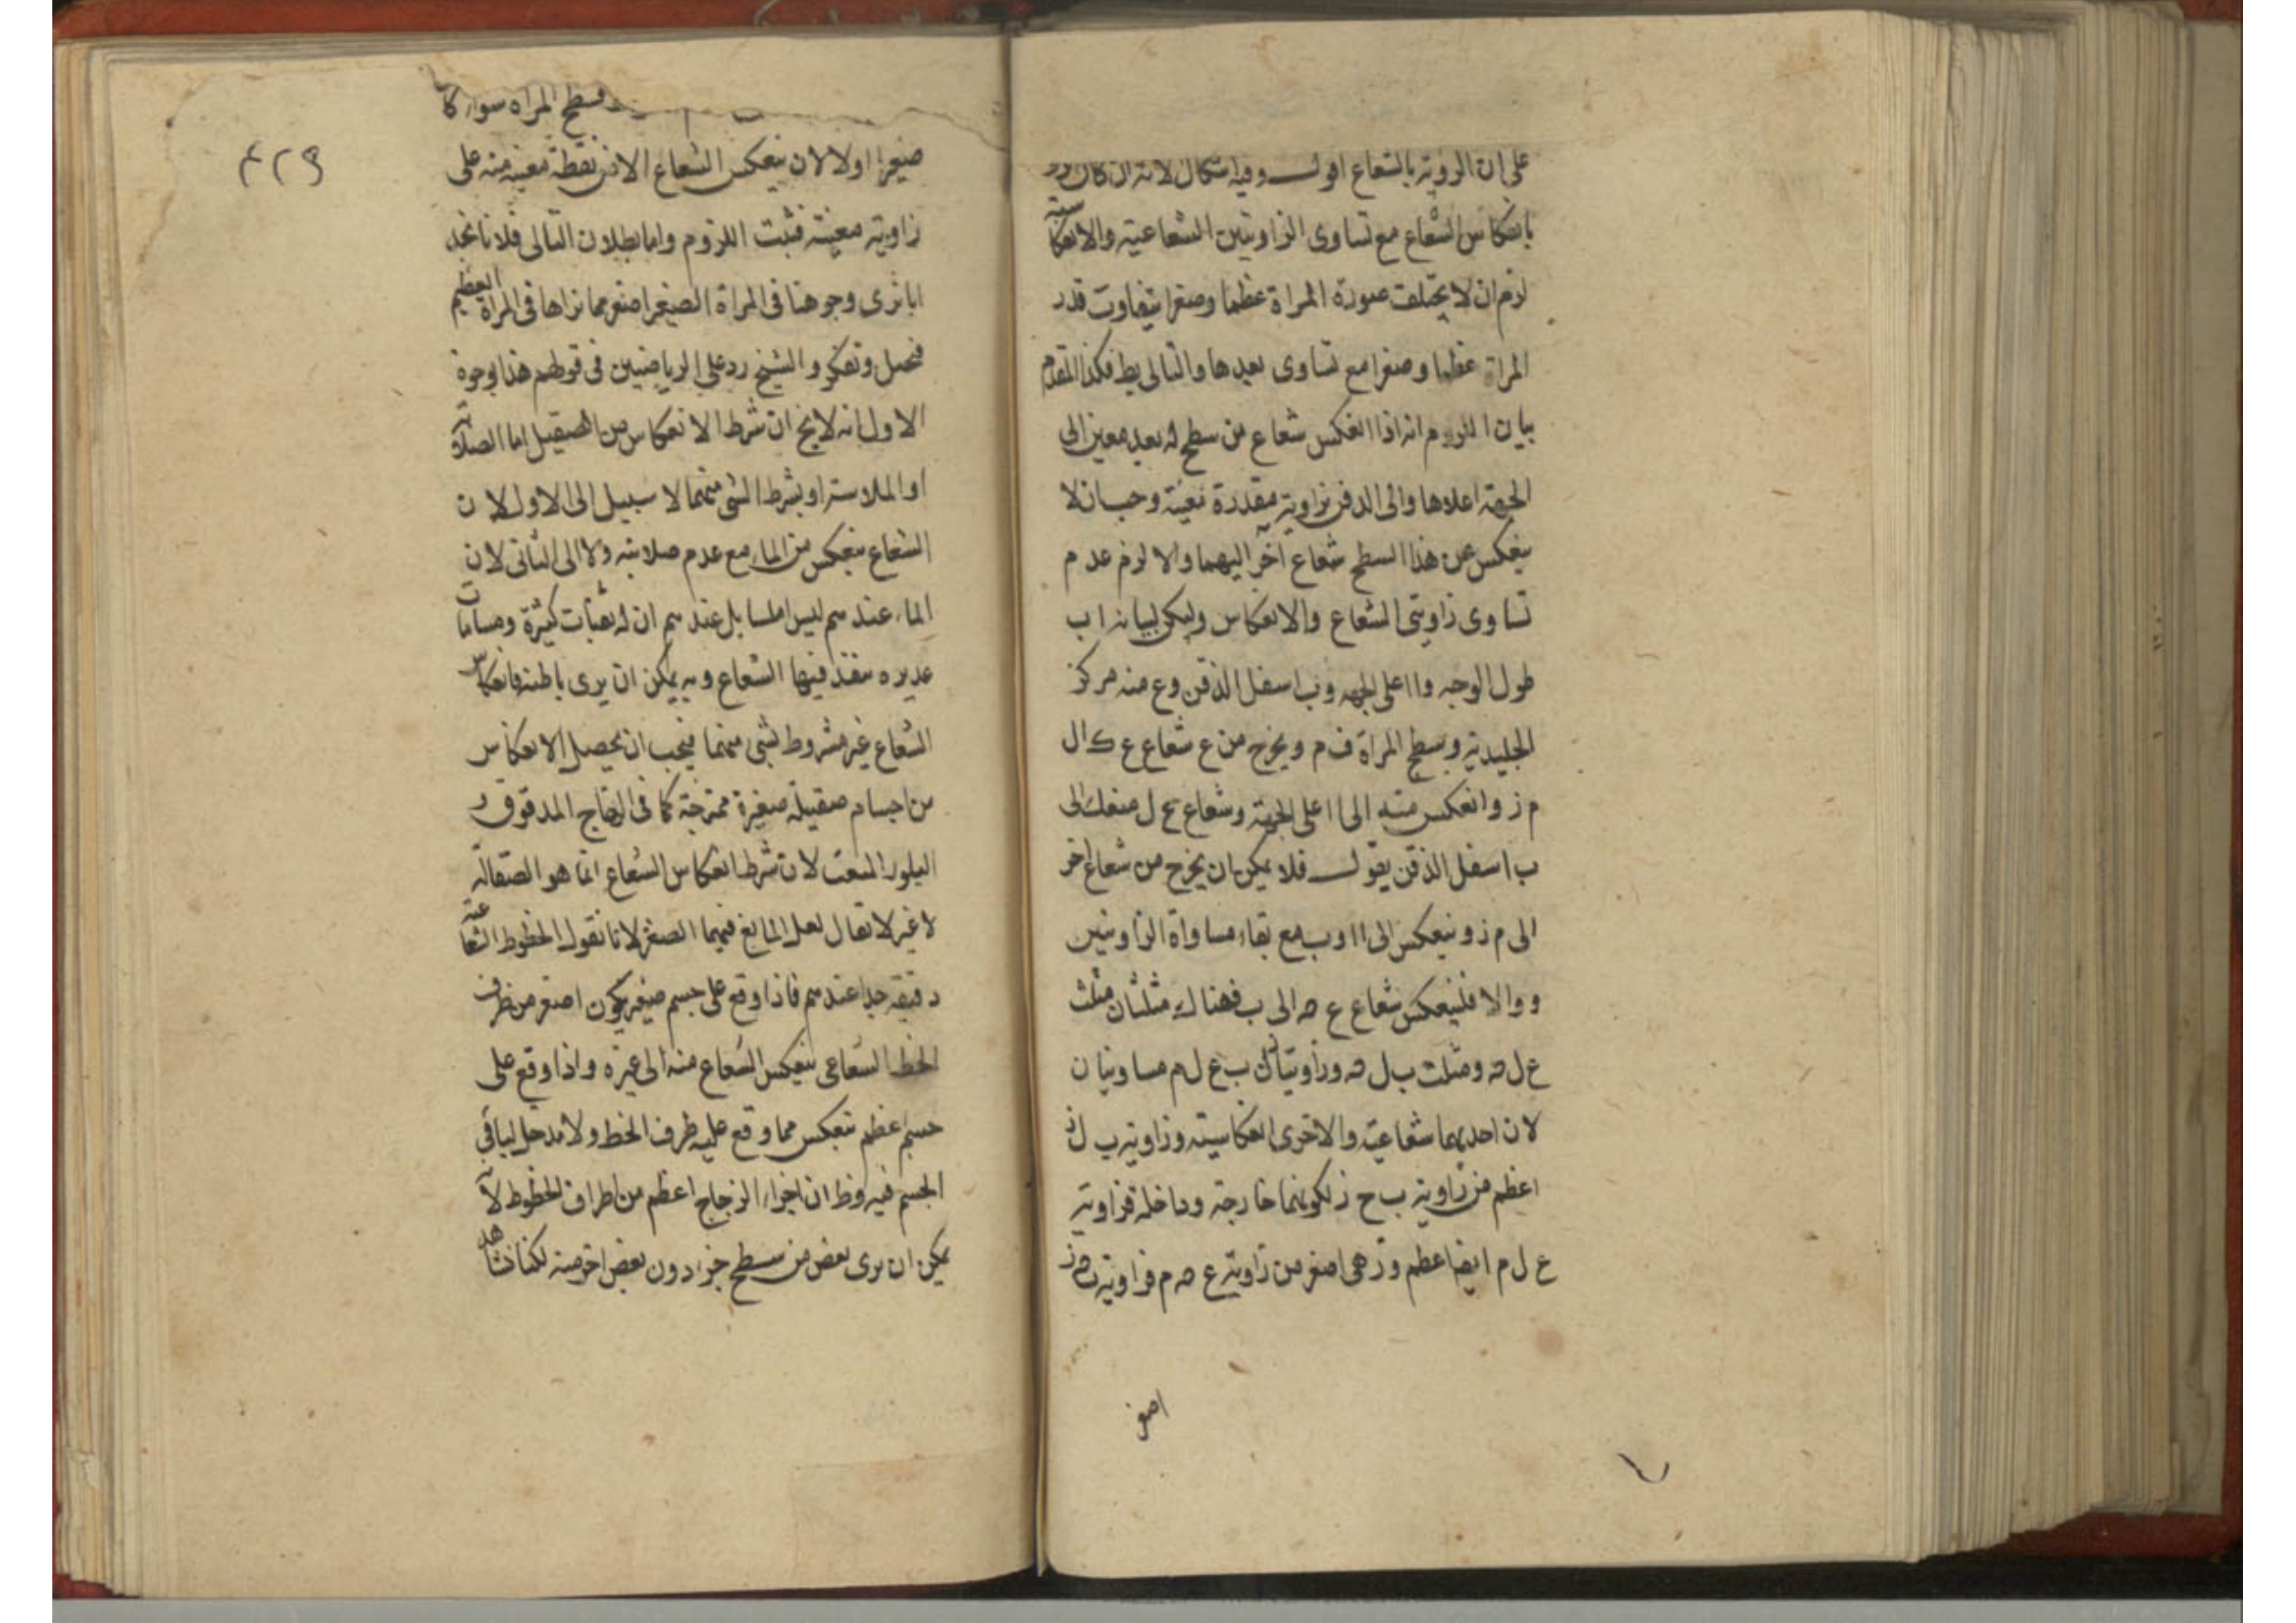 على ان الروية بالشعاع اقول وفيه اشكال لانه ان كان
بانعكاس الشعاع مع تساوى الزاويتين الشعاعية والانعكاسية
لزم ان لا يختلف صورة المراة عظما وصغرا بتفاوت قدر
المراة عظما وصغرا مع تساوى بعدها والتالى بط فكذا المقدم
بيان اللزوم انه اذا انعكس شعاع من سطح له بعد معين الى
الجبهة اعلاها والى الذقن بزاوية مقدرة معينة وجب ان لا
ينعكس عن هذا السطح شعاع آخر اليهما والا لزم عدم
تساوى زاويتى الشعاع والانعكاس وليكن لبيانه ا ب
طول الوجه وا اعلى الجبهه وب اسفل الذقن وع منه مركز
الجليدية وسطح المراة ف م ويخرج من ع شعاع ع ك ال
م ز وانعكس منه الى ا اعلى الجبهة وشعاع ع ل منعك الى
ب اسفل الذقن يقول فلا يمكن ان يخرج من شعاع اخر
الى م ز وينعكس الى ا او ب مع بقاء مساواة الزاويتين
و والا فلينعكس شعاع ع ه الى ب فهناك مثلثان مثلث
ع ل ه ومثلث ب ل ه وزاويتا ب ع ل م مساويتان
لان احديهما شعاعية والاخرى انعكاسيته وزاوية ب ل ز
اعظم من زاوية ب ح ز لكونهما خارجة وداخلة فزاوية
ع ل م ايضا اعظم وزهى اصغر من زاوية ع ه م فزاوية ب ه ز
اصغر
٤٢٩
فسطح المراه سواء كا
صغيرا اولا لان ينعكس الشعاع الا من نقطة معينه منه على
زاوية معينة فثبت اللزوم واما بطلان التالى فلانا نجد
انا نرى وجوهنا فى المراة الصغيرا اصغر مما نراها فى المراة العظيم
فتحيل وتفكر والشيخ رد على الرياضيين فى قولهم هذا بوجوة
الاول انه لا يخ ان شرط الانعكاس من الصقيل اما الصلابة
او الملاسة او بشرط الشى منهما لا سبيل الى الاول لان
الشعاع ينعكس من الماء مع عدم صلابته ولا الى الثانى لان
الماء عندهم ليس املسا بل عندهم ان له ثقبات كثيرة ومسامات
عديده ينفذ فيها الشعاع وبه يمكن ان يرى باطنه فانعكاس
الشعاع غير مشروط بشى منهما فيجب ان يحصل الانعكاس
من اجسام صقيلة صغيرة ممتزجة كما فى الزجاج المدقوق و
البلور المفتت لان شرط انعكاس الشعاع انما هو الصقالة
لا غير لا يقال لعل المانع فيهما الصغر لانا نقول الخطوط الشعاعية
دقيقه جدا عندهم فاذا وقع على جسم صغير يكون اصغر من طرف
الخط الشعاعى ينعكس الشعاع منه الى غيره واذا وقع على
جسم عظم ينعكس مما وقع عليه طرف الخط ولا مدخل لباقى
الجسم فيه وظ ان اجزاء الزجاج اعظم من اطراف الخطوط لانه
يمكن ان يرى بعض من سطح جزء دون بعض اخر منه لكنا نشاهد